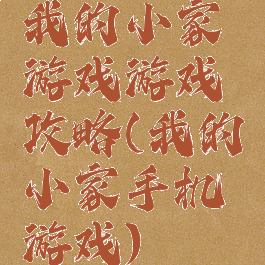 我的小家
游戏游戏
攻略(我的
小家手机
游戏)